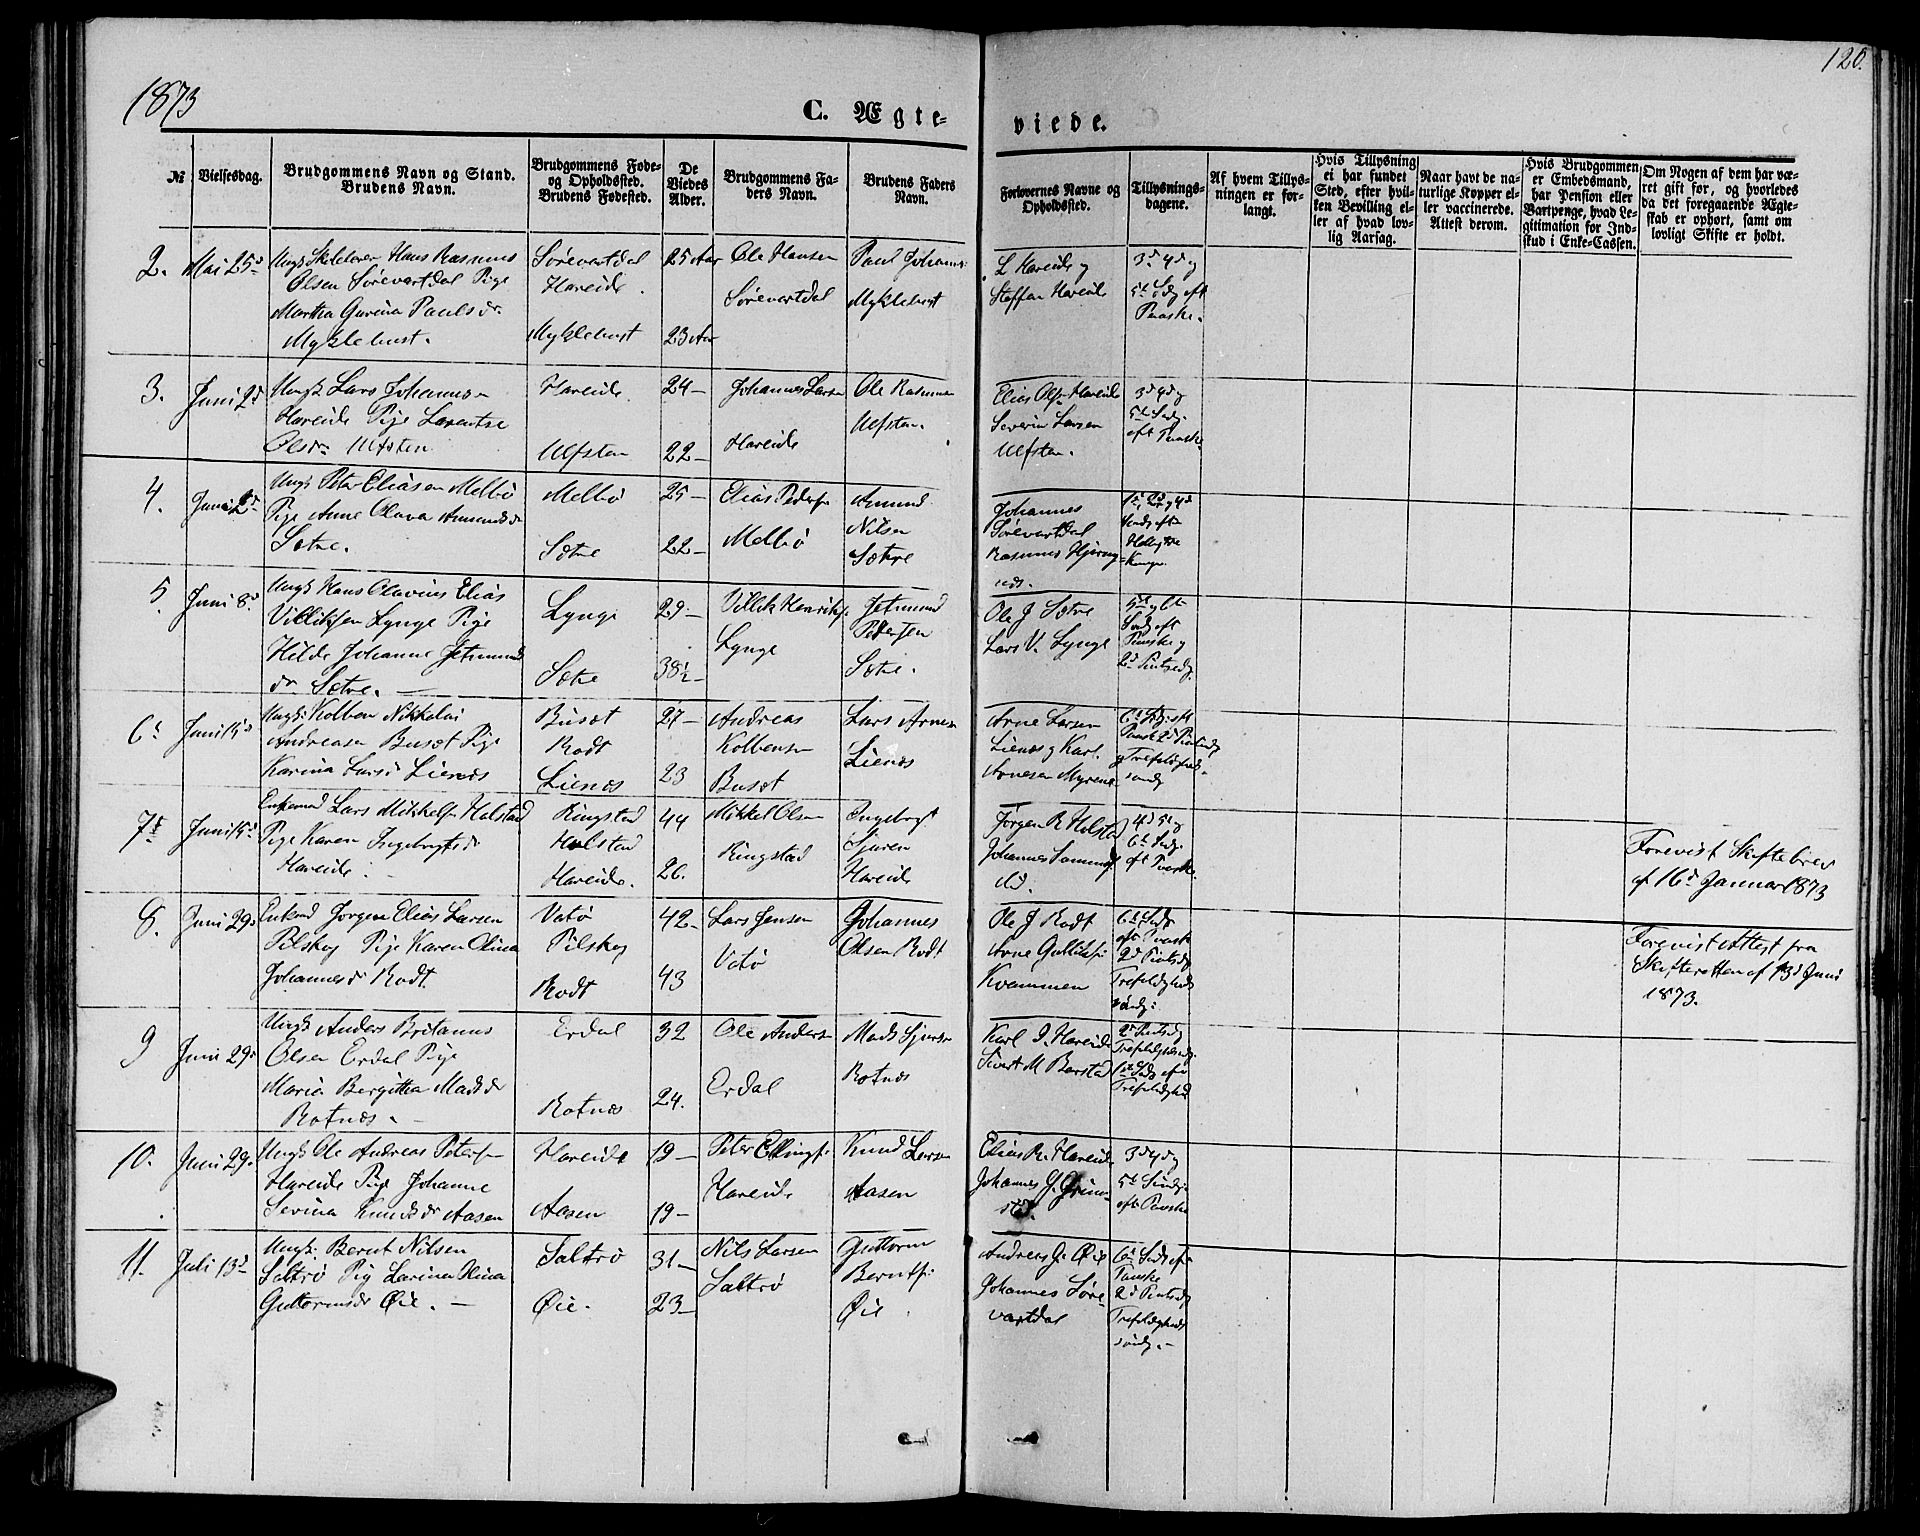 1873
C. Ægte-
viede.
120.
№
Vielsesdag.
Brudgommens Navn og Stand.
Brudens Navn.
Brudgommens Føde-
og Opholdssted.
Brudens Fødested.
De
Viedes
Alder.
Brudgommens Fa-
ders Navn.
Brudens Faders
Navn.
Forlovernes Navne og
Opholdssted.
Tillysnings-
dagene.
Af hvem Tillys-
ningen er for-
langt.
Hvis Tillysning
ei har fundet
Sted, efter hvil-
ken Bevilling el-
ler af hvad lov-
lig Aarsag.
Naar havt de na-
turlige Kopper el-
ler vaccinerede.
Attest derom.
Hvis Brudgommen
er Embedsmand,
har Pension eller
Vartpenge, hvad Le-
gitimation for Ind-
skud i Enke-Cassen.
Om Nogen af dem har væ-
ret gift før, og hvorledes
da det foregaaende Ægte-
skab er ophørt, samt om
lovligt Skifte er holdt.
2. Mai 25d
Ungk Skolelærer Hans Rasmus
Olsen Sørevartdal Pige
Martha Gurina Paulsdr
Myklebust.
Sørevartdal
Hareide.
Myklebust
25 Aar
23 Aar
Ole Hansen
Sørevartdal
Paul Johanns:
Myklebust
L Hareide og
Steffen Hareide
3d 4d og
5t Sdg eft
Paaske.
3. Juni 2d
Ungk Lars Johannesen
Hareide Pige Larentse
Olsdr Ulfsten
Hareide
Ulfsten
24-
22-
Johannes Larsen
Hareide
Ole Rasmussen
Ulfsten.
Elias Olsen Hareide
Severin Larsen
Ulfsten.
3d 4d og
5t Sndg.
eft Paaske
4. Juni 2d
Ungk Peter Eliasen Melbø
Pige Anne Olava Amundsdr
Sætre.
Melbø
Sætre
25-
22-
Elias Peders
Melbø
Amund
Nilsen
Sætre
Johannes
Sørevartdal
Rasmus Hjørung-
nes.
1st, 2d og 4d
Søndg eft
Hellig tre
Konger
5. Juni 8d
Ungk Hans Olavius Elias
Villiksen Lynge Pige
Hilde Johanne Jetmund
dr Sætre. -
Lynge
Sætre
29-
38½-
Villik Henriks
Lynge
Jetmund
Pettersen
Sætre.
Ole J Sætre
Lars V. Lynge
5t og 6t
Søndg eft
Paaske og
2d Pintsedg.
6t Juni 15d
Ungk: Kolben Nikkolai
Andreasen Busæt Pige
Karina Larsd Lienæs
Busæt
Rødt
Lienæs
27-
23
Andreas
Kolbensen
Busæt
Lars Arnesen
Lienæs
Arne Larsen
Lienæs og Karl
Arnesen Myrene
6t Sndg: eft
Paask 2d Pintsedg
og Trefoldighed-
søndg
7d Juni 15d
Enkemd Lars Mikkels Halstad
Pige Karen Ingebrigtsdr
Hareide. -
Ringstad
Halstad
Hareide.
44
26.
Mikkel Olsen
Ringstad
Ingebrigt
Sjursen
Hareide
Jørgen R Holstad
Johannes
4d 5t og
6t Sndg:
eft Paaske.
Forevist Skiftebrev
af 16d Januar 1873
8. Juni 29d
Enkmd Jørgen Elias Larsen
Pilskog Pige Karen Olina
Johannesdr Rødt.
Vatø
Pilskog
Rødt
42-
43
Lars Jensen
Vatø
Johannes
Olsen Rødt
Ole J Rødt
Arne Gulliks:
Kvammen
6t Sndg
eft Paask
2d Pintsdg
Trefoldigheds
søndg:
Forevist Attest fra
Skifteretten af 13d Juni
1873.
9 Juni 29d
Ungk Anders Britanus
Olsen Erdal Pige
Maria Bergitha Madsdr
Rotnæs. -
Erdal
Rotnæs
32
24.
Ole Andersen
Erdal
Mads Sjursen
Rotnæs
Karl I. Hareide
Sivert M Barstad
2d Pintsdg
Trefoldighsndg:
1st Sndg eft
Trefoldighed
10. Juni 29d
Ungk Ole Andreas Petersen
Hareide Pige Johanne
Sevrina Knudsdr Aasen
Hareide
Aasen
19-
19-
Peter Ellings:
Hareide
Knud Larsen
Aasen
Elias R. Hareide
Johannes G. Grim-
stad.
3d 4d og
5t Søndg:
eft Paaske
11. Juli 13d
Ungk: Bernt Nilsen
Saltrø Pig Larina Olina
Guttormsdr Øie. -
Saltrø
Øie.
31-
23-
Nils Larsen
Saltrø
Guttorm
Bernts:
Øie.
Andreas G. Øie
Johannes Søre-
vartdal
6t Sndg eft
Paaske
2d Pintsdg
Trefoldigheds
søndg. -